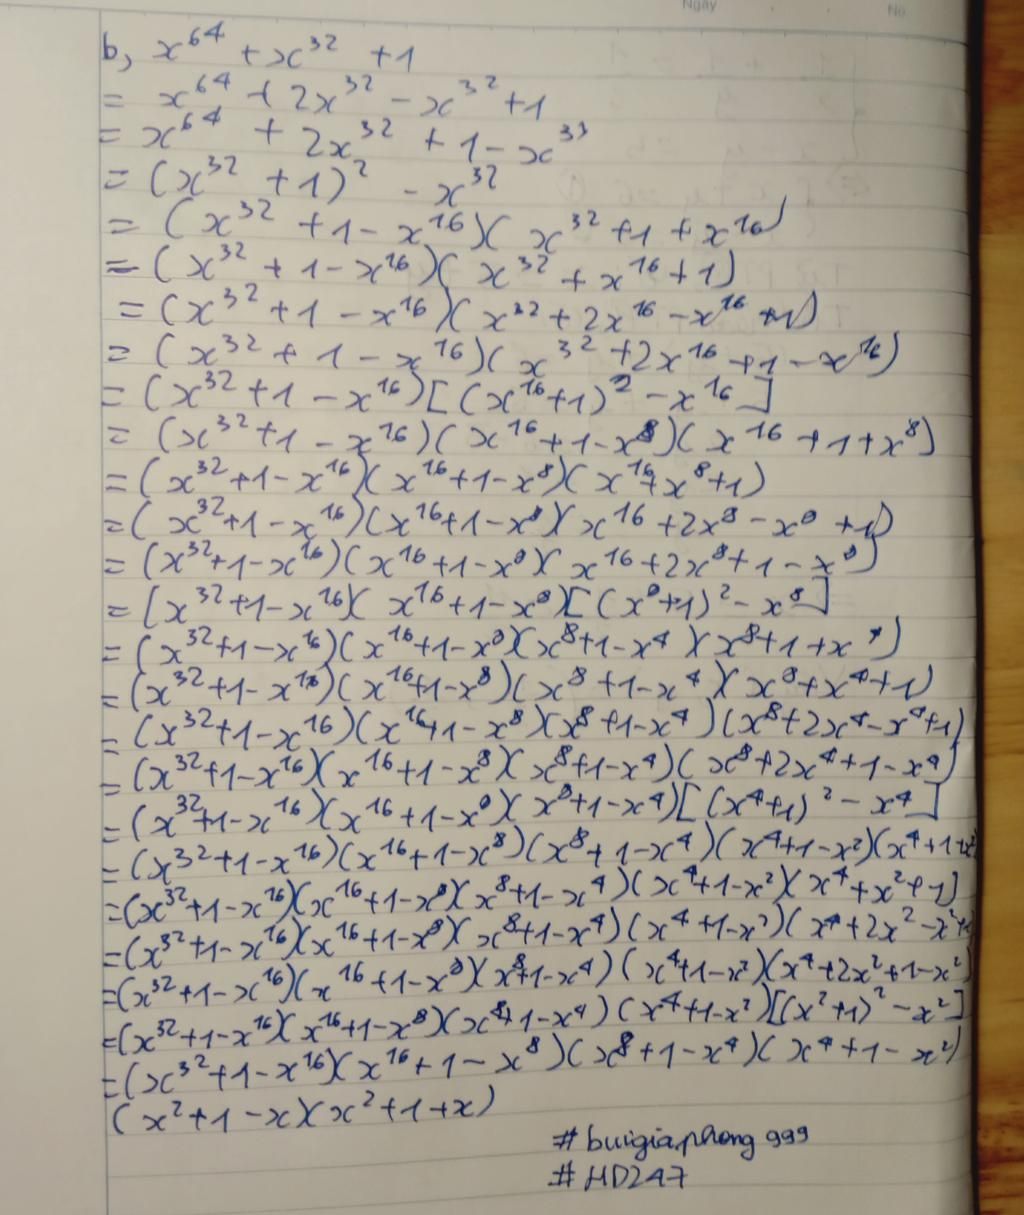 Ngày No
b, x⁶⁴ + x³² + 1
= x⁶⁴ + 2x³² - x³² + 1
= x⁶⁴ + 2x³² + 1 - x³²
= (x³² + 1)² - x³²
= (x³² + 1 - x¹⁶)(x³² + 1 + x¹⁶)
= (x³² + 1 - x¹⁶)(x³² + x¹⁶ + 1)
= (x³² + 1 - x¹⁶)(x³² + 2x¹⁶ - x¹⁶ + 1)
= (x³² + 1 - x¹⁶)(x³² + 2x¹⁶ + 1 - x¹⁶)
= (x³² + 1 - x¹⁶)[(x¹⁶ + 1)² - x¹⁶]
= (x³² + 1 - x¹⁶)(x¹⁶ + 1 - x⁸)(x¹⁶ + 1 + x⁸)
= (x³² + 1 - x¹⁶)(x¹⁶ + 1 - x⁸)(x¹⁶ + x⁸ + 1)
= (x³² + 1 - x¹⁶)(x¹⁶ + 1 - x⁸)(x¹⁶ + 2x⁸ - x⁸ + 1)
= (x³² + 1 - x¹⁶)(x¹⁶ + 1 - x⁸)(x¹⁶ + 2x⁸ + 1 - x⁸)
= [x³² + 1 - x¹⁶)(x¹⁶ + 1 - x⁸)[(x⁸ + 1)² - x⁸]
= (x³² + 1 - x¹⁶)(x¹⁶ + 1 - x⁸)(x⁸ + 1 - x⁴)(x⁸ + 1 + x⁴)
= (x³² + 1 - x¹⁶)(x¹⁶ + 1 - x⁸)(x⁸ + 1 - x⁴)(x⁸ + x⁴ + 1)
= (x³² + 1 - x¹⁶)(x¹⁶ + 1 - x⁸)(x⁸ + 1 - x⁴)(x⁸ + 2x⁴ - x⁴ + 1)
= (x³² + 1 - x¹⁶)(x¹⁶ + 1 - x⁸)(x⁸ + 1 - x⁴)(x⁸ + 2x⁴ + 1 - x⁴)
= (x³² + 1 - x¹⁶)(x¹⁶ + 1 - x⁸)(x⁸ + 1 - x⁴)[(x⁴ + 1)² - x⁴]
= (x³² + 1 - x¹⁶)(x¹⁶ + 1 - x⁸)(x⁸ + 1 - x⁴)(x⁴ + 1 - x²)(x⁴ + 1 + x²)
= (x³² + 1 - x¹⁶)(x¹⁶ + 1 - x⁸)(x⁸ + 1 - x⁴)(x⁴ + 1 - x²)(x⁴ + x² + 1)
= (x³² + 1 - x¹⁶)(x¹⁶ + 1 - x⁸)(x⁸ + 1 - x⁴)(x⁴ + 1 - x²)(x⁴ + 2x² - x² + 1)
= (x³² + 1 - x¹⁶)(x¹⁶ + 1 - x⁸)(x⁸ + 1 - x⁴)(x⁴ + 1 - x²)(x⁴ + 2x² + 1 - x²)
= (x³² + 1 - x¹⁶)(x¹⁶ + 1 - x⁸)(x⁸ + 1 - x⁴)(x⁴ + 1 - x²)[(x² + 1)² - x²]
= (x³² + 1 - x¹⁶)(x¹⁶ + 1 - x⁸)(x⁸ + 1 - x⁴)(x⁴ + 1 - x²)
(x² + 1 - x)(x² + 1 + x)
# buigiaphong 999
# HD247